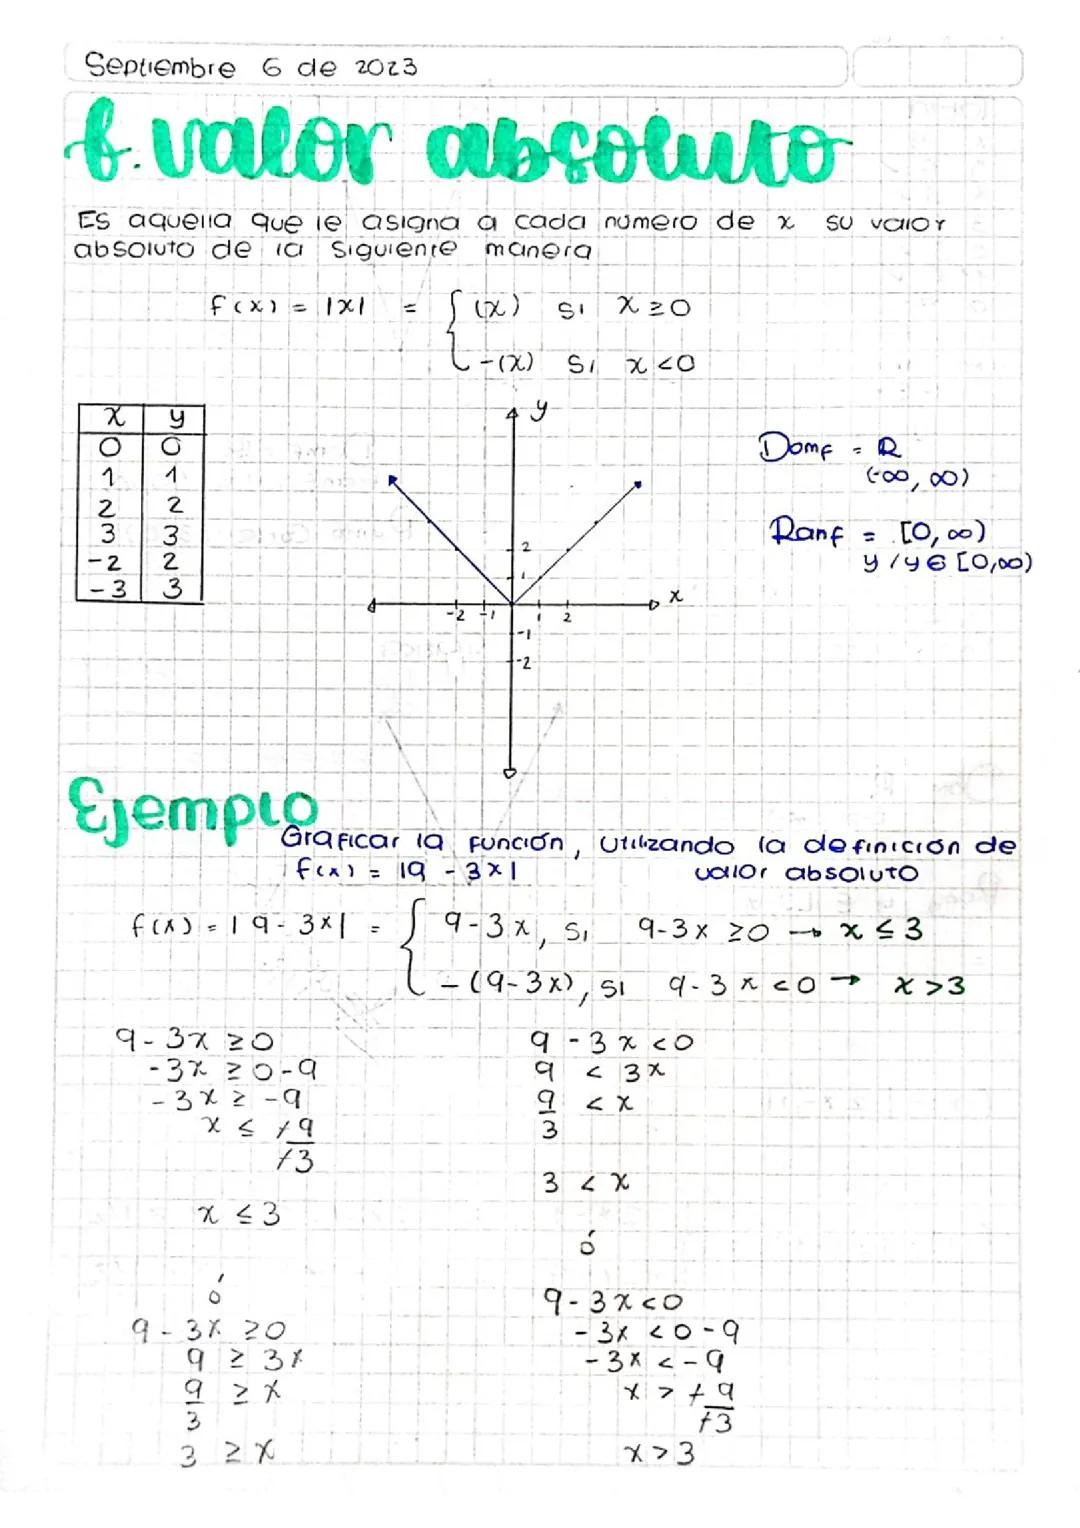 Septiembre 6 de 2023
f. valor absoluto
Es aquella que le asigna a cada numero de x su valor
absoluto de la siguiente manera
f(x) = |x| = { (x) si x ≥ 0
-(x) si x < 0
x y
0 0
1 1
2 2
3 3
-2 2
-3 3
y
2
1
-2 -1 1 2 x
-1
-2
Domf = R
(-∞, ∞)
Ranf = [0, ∞)
y / y ∈ [0,∞)
Ejemplo
Graficar la función, utilizando la definición de
f(x) = |9 - 3x| valor absoluto
f(x) = |9 - 3x| = { 9 - 3x, si 9-3x ≥ 0 → x ≤ 3
- (9-3x), si 9-3x < 0 → x > 3
9 - 3x ≥ 0
-3x ≥ 0-9
-3x ≥ -9
x ≤ -9
-3
x ≤ 3
ó
9 - 3x ≥ 0
9 ≥ 3x
9 ≥ x
3
3 ≥ x
9 - 3x < 0
9 < 3x
9 < x
3
3 < x
ó
9 - 3x < 0
- 3x < 0 - 9
- 3x < - 9
x > -9
-3
x > 3